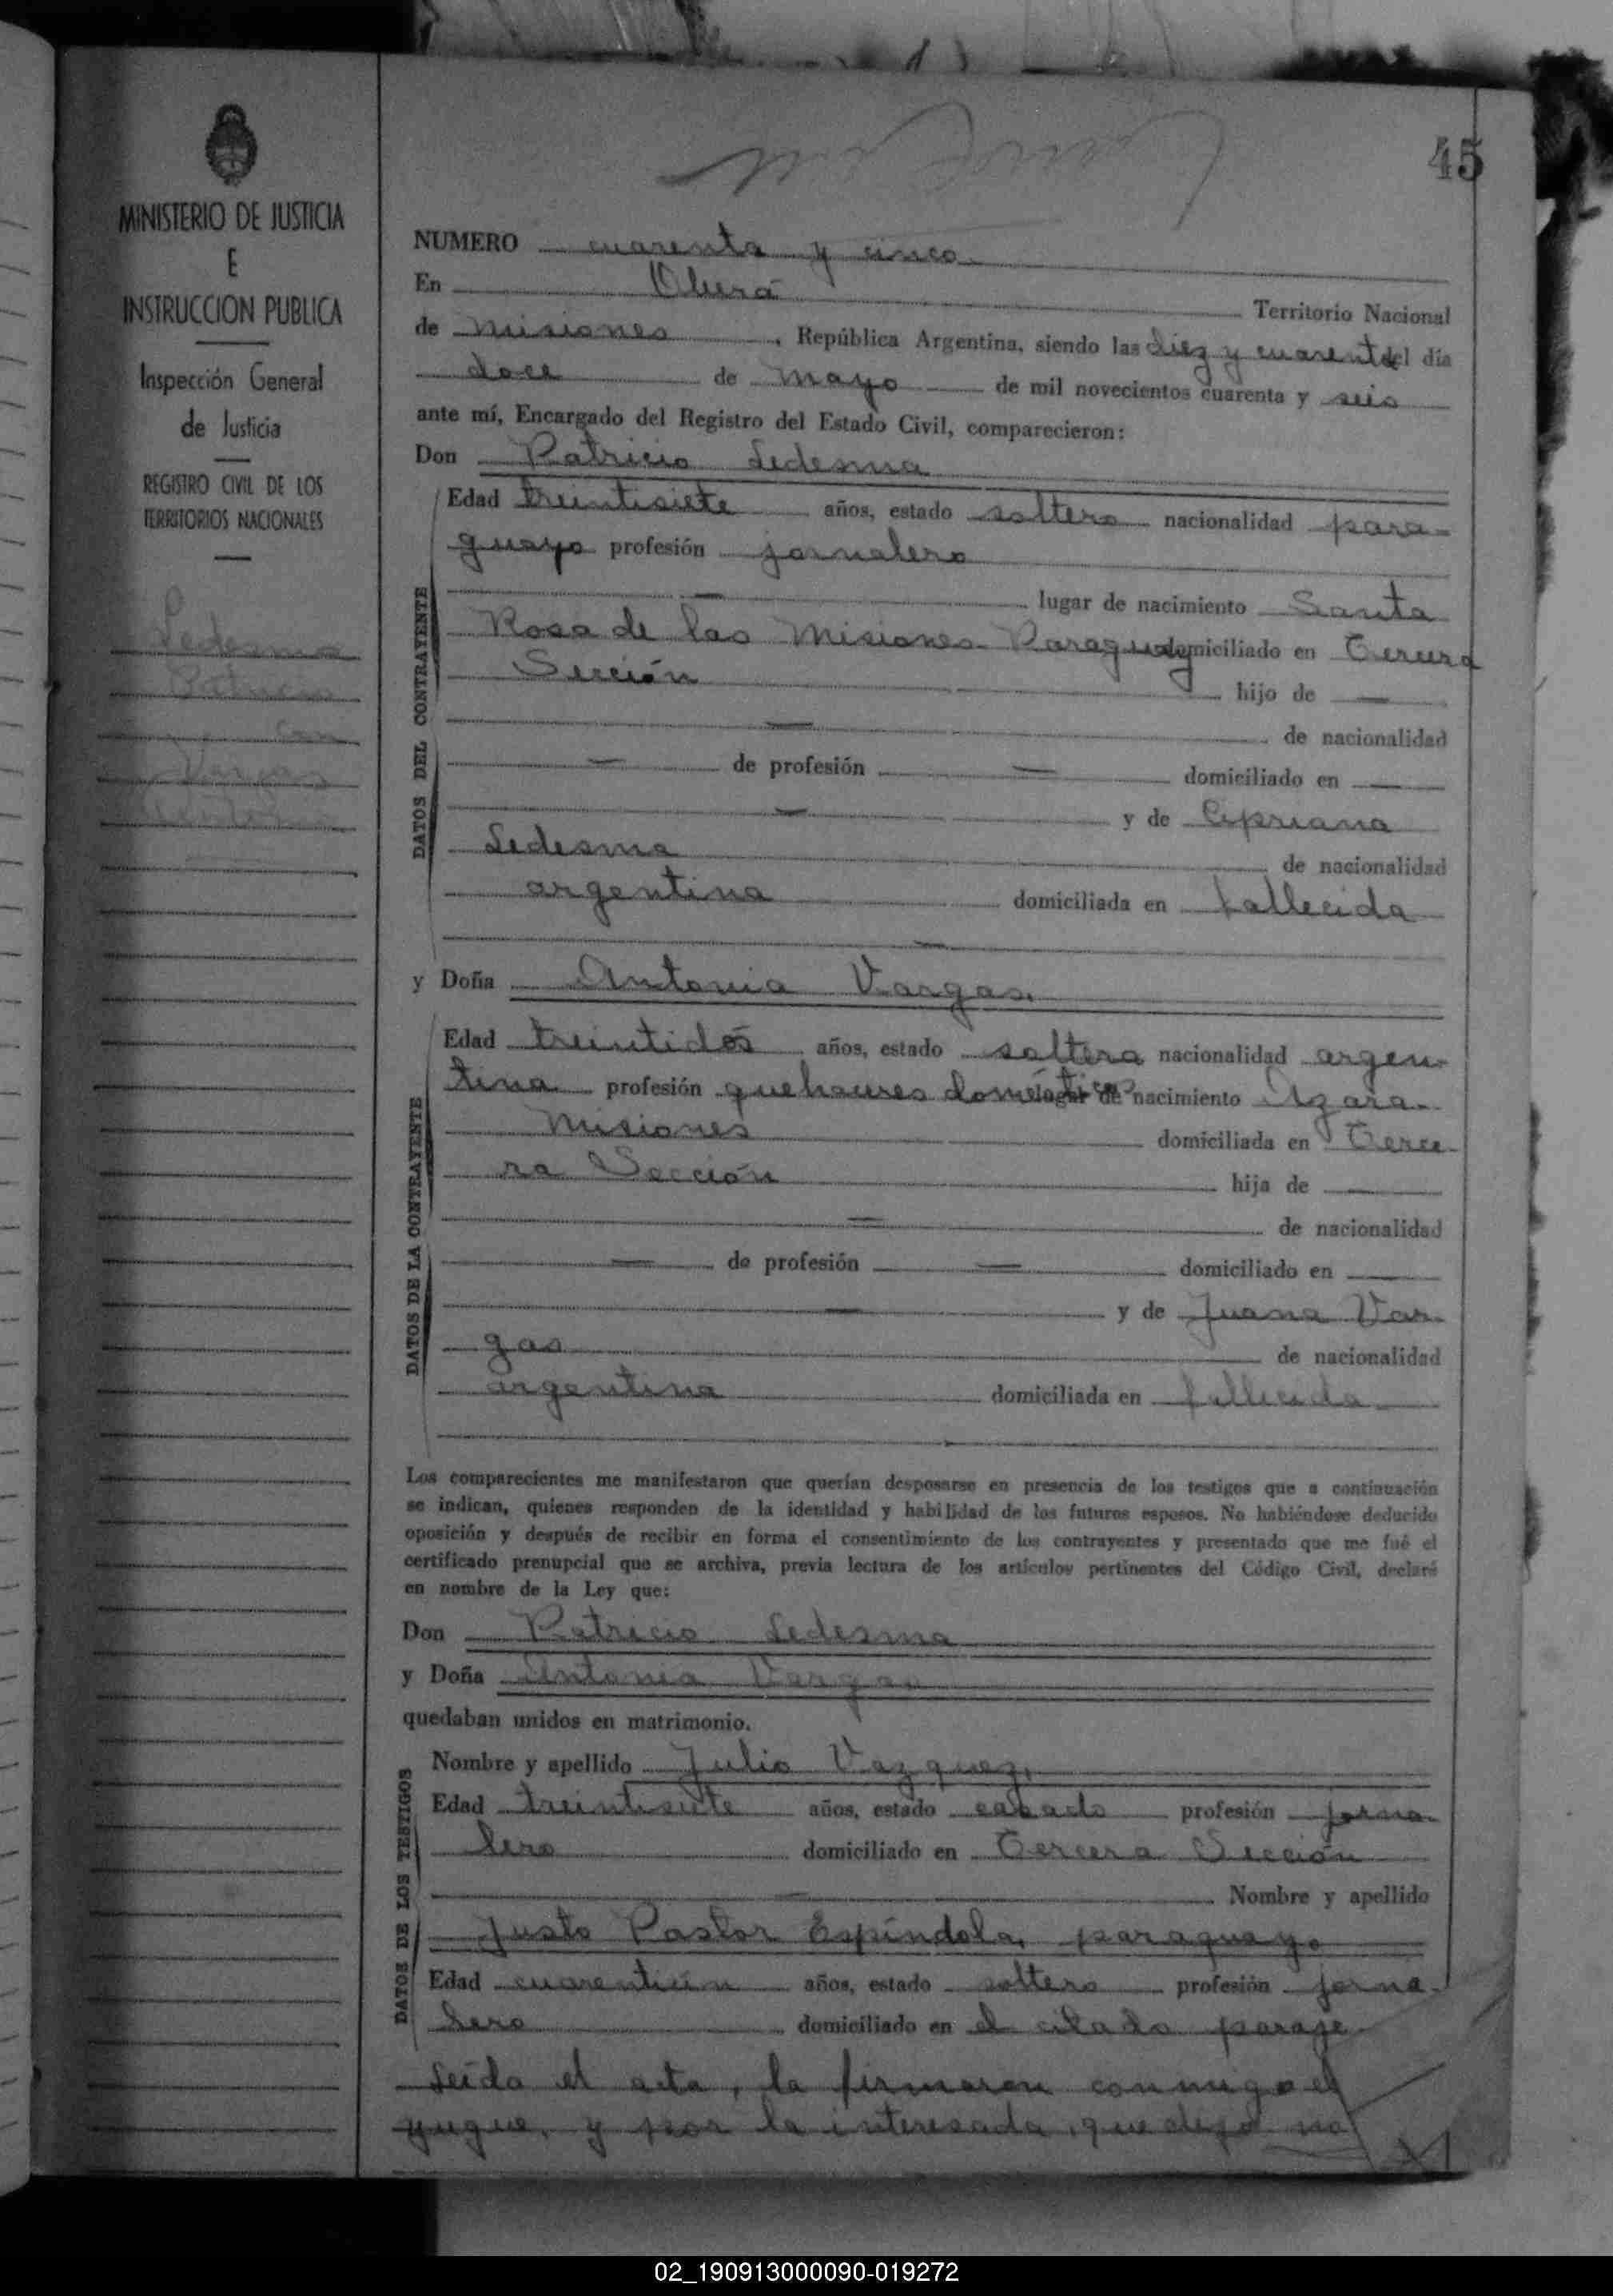 MINISTERIO DE JUSTICIA
E
INSTRUCCION PUBLICA
Inspección General
de Justicia
REGISTRO CIVIL DE LOS
TERRITORIOS NACIONALES
Ledesma
Patricio
con
Vargas
Antonia
45
NUMERO cuarenta y cinco
En Oberá Territorio Nacional
de Misiones, República Argentina, siendo las diez y cuarenta del día
doce de mayo de mil novecientos cuarenta y seis
ante mí, Encargado del Registro del Estado Civil, comparecieron:
Don Patricio Ledesma
DATOS DEL CONTRAYENTE
Edad treintisiete años, estado soltero nacionalidad para-
guayo profesión jornalero
— lugar de nacimiento Santa
Rosa de las Misiones Paraguay domiciliado en Tercera
Sección hijo de —
— de nacionalidad
— de profesión — domiciliado en —
— y de Cipriana
Ledesma de nacionalidad
argentina domiciliada en fallecida
—
y Doña Antonia Vargas.
DATOS DE LA CONTRAYENTE
Edad treintidós años, estado soltera nacionalidad argen-
tina profesión quehaceres domésticos lugar de nacimiento Azara-
Misiones domiciliada en Terce-
ra Sección hija de —
— de nacionalidad
— de profesión — domiciliado en —
— y de Juana Var-
gas de nacionalidad
argentina domiciliada en fallecida
Los comparecientes me manifestaron que querían desposarse en presencia de los testigos que a continuación
se indican, quienes responden de la identidad y habilidad de los futuros esposos. No habiéndose deducido
oposición y después de recibir en forma el consentimiento de los contrayentes y presentado que me fué el
certificado prenupcial que se archiva, previa lectura de los artículos pertinentes del Código Civil, declaré
en nombre de la Ley que:
Don Patricio Ledesma
y Doña Antonia Vargas
quedaban unidos en matrimonio.
DATOS DE LOS TESTIGOS
Nombre y apellido Julio Vazquez,
Edad treintisiete años, estado casado profesión jorna-
lero domiciliado en Tercera Sección
— Nombre y apellido
Justo Pastor Espíndola, paraguayo
Edad cuarentiún años, estado soltero profesión jorna-
lero domiciliado en el citado paraje.
Leída el acta, la firmaron conmigo el
yugue, y por la interesada, que dijo no
02_190913000090-019272